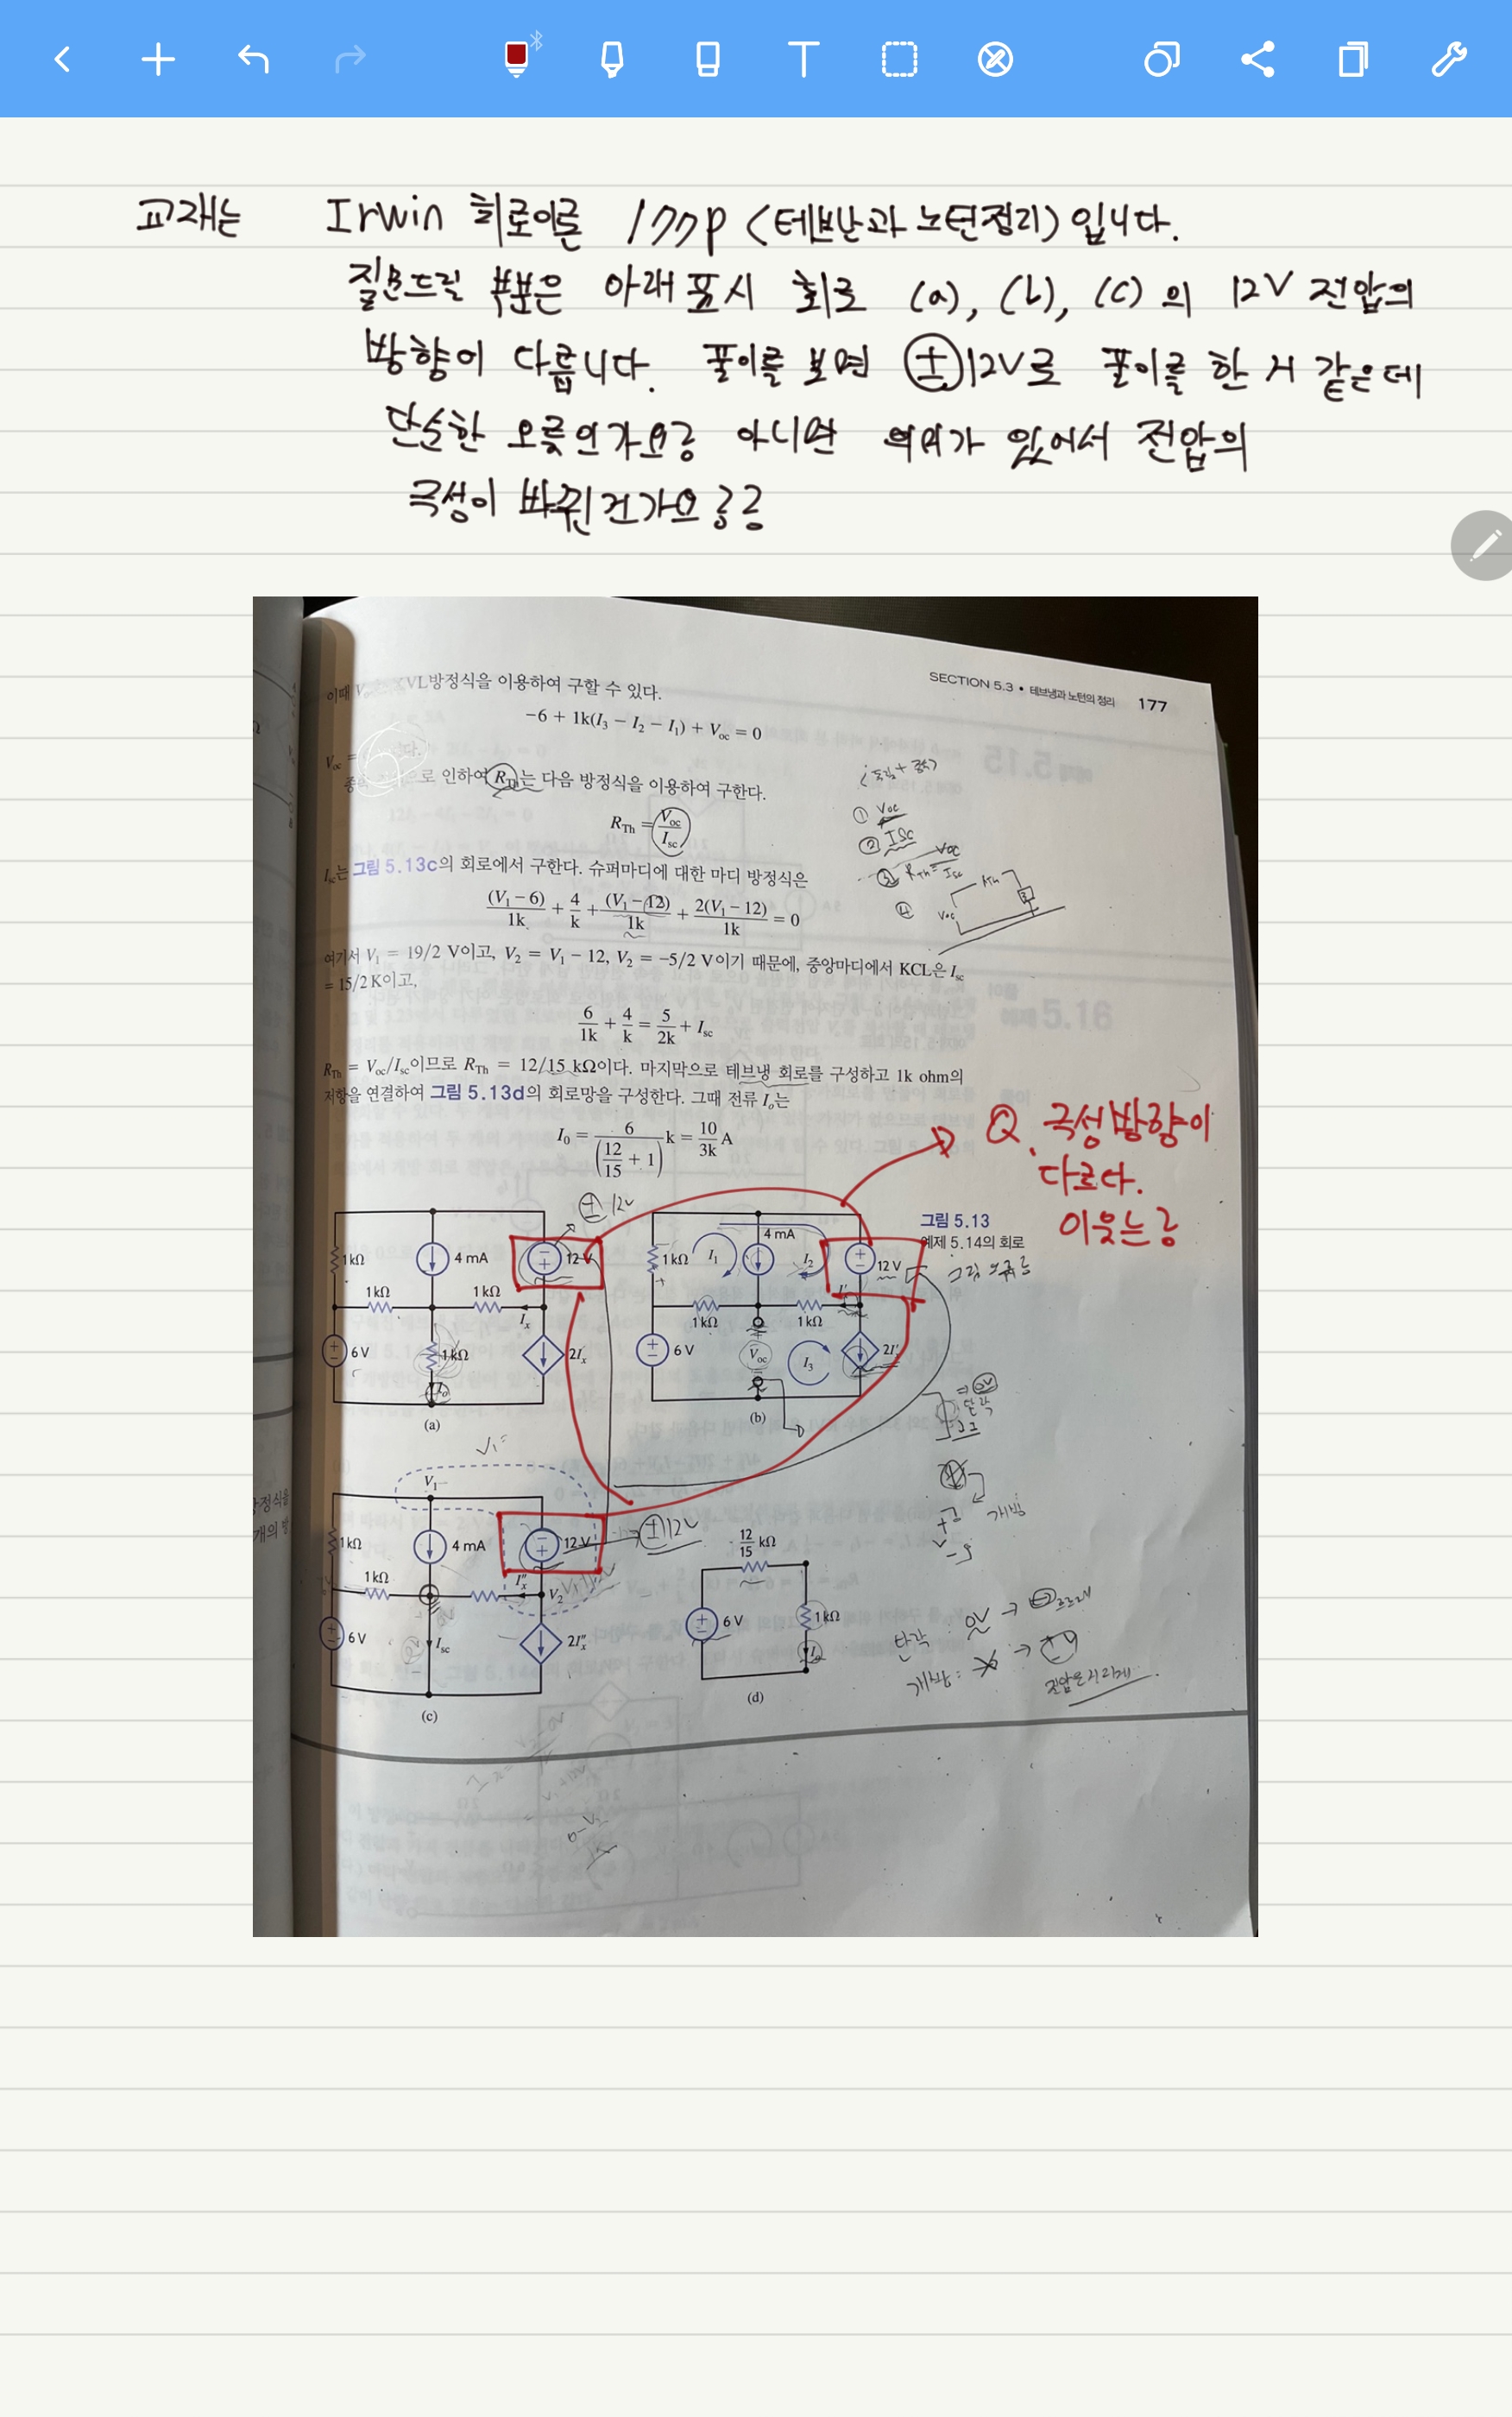 교재는 Irwin 회로이론 177p (테브난과 노턴정리) 입니다.
질문드릴 부분은 아래 표시 회로 (a), (b), (c) 의 12V 전압의
방향이 다릅니다. 풀이를 보면 ±12V로 풀이를 한 거 같은데
단순한 오류인가요? 아니면 의미가 있어서 전압의
극성이 바뀐건가요??
SECTION 5.3 • 테브냉과 노턴의 정리 177
이때 KVL방정식을 이용하여 구할 수 있다.
−6 + 1k(I₃ − I₂ − I₁) + Voc = 0
Voc =
종속 로 인하여 RTh는 다음 방정식을 이용하여 구한다.
RTh = Voc/Isc
① Voc
② Isc
③ RTh = Voc/Isc
④
Voc
RTh
Isc는 그림 5.13c의 회로에서 구한다. 슈퍼마디에 대한 마디 방정식은
(V₁ − 6)/1k + 4/k + (V₁ − 12)/1k + 2(V₁ − 12)/1k = 0
여기서 V₁ = 19/2 V이고, V₂ = V₁ − 12, V₂ = −5/2 V이기 때문에, 중앙마디에서 KCL은 Isc
= 15/2 K이고,
6/1k + 4/k = 5/2k + Isc
RTh = Voc/Isc이므로 RTh = 12/15 kΩ이다. 마지막으로 테브냉 회로를 구성하고 1k ohm의
저항을 연결하여 그림 5.13d의 회로망을 구성한다. 그때 전류 Iₒ는
I₀ = 6/(12/15 + 1) k = 10/3k A
Q. 극성방향이
다르다.
이유는?
± 12V
그림 5.13
예제 5.14의 회로
그림 오류?
1kΩ
4 mA
12 V
1kΩ
1kΩ
Ix
6 V
1kΩ
2Ix
Io
(a)
1kΩ
I₁
4 mA
I₂
12 V
1kΩ
1kΩ
I'x
6 V
Voc
I₃
2I'x
(b)
V₁
1kΩ
4 mA
12 V
±12V
1kΩ
I''x
V₂
6 V
Isc
2I''x
(c)
12/15 kΩ
6 V
1kΩ
Io
(d)
개방
단락 : 0V →
개방 :